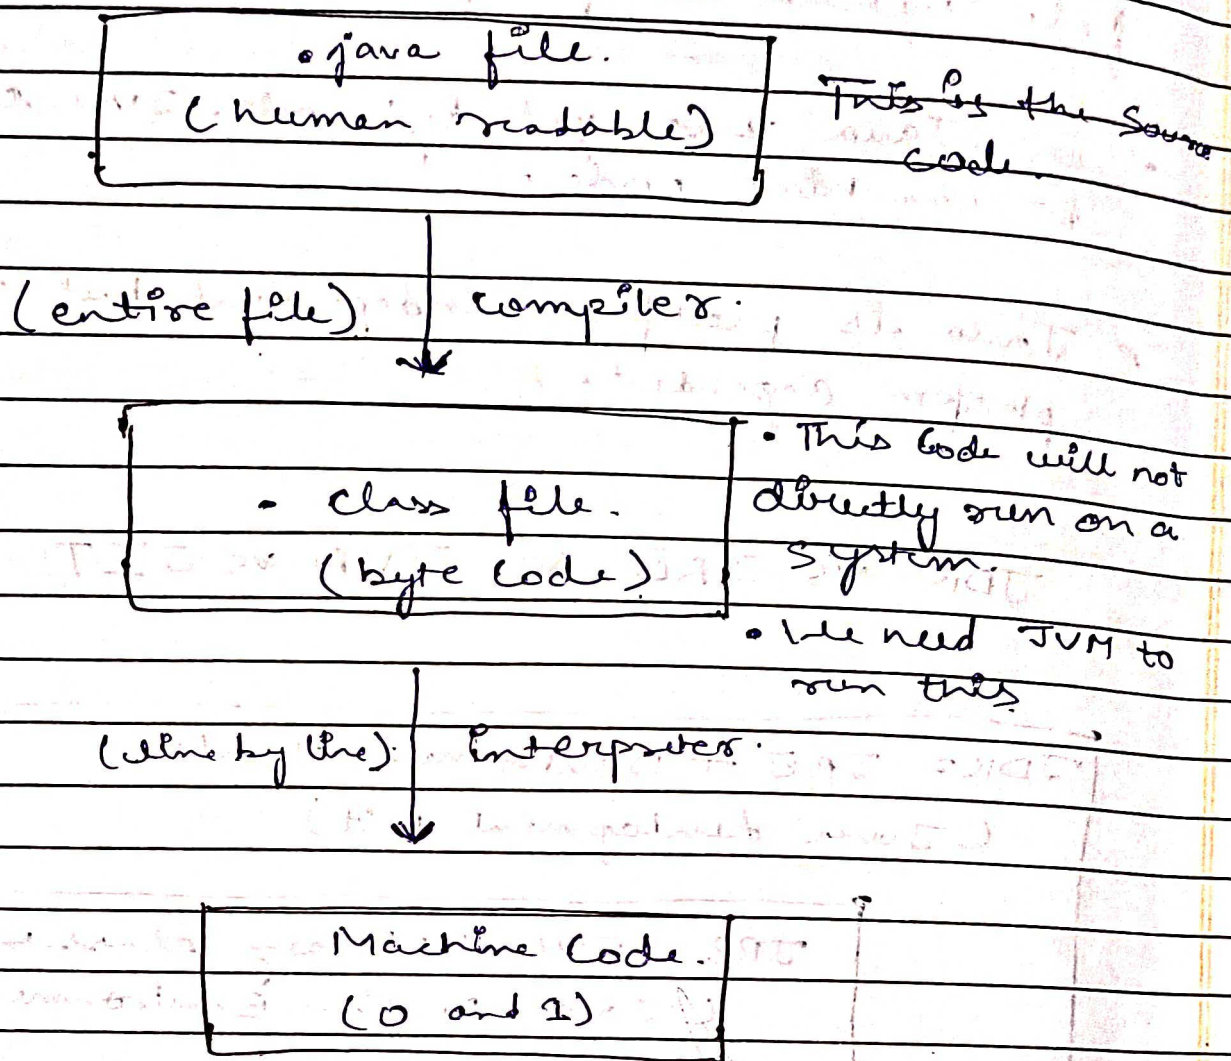 .java file.
(human readable)
This is the Source
code.
(entire file). compiler.
. class file.
(byte code)
• This Code will not
directly run on a
system.
• We need JVM to
run this
(line by line). interpreter.
Machine Code.
(0 and 1)